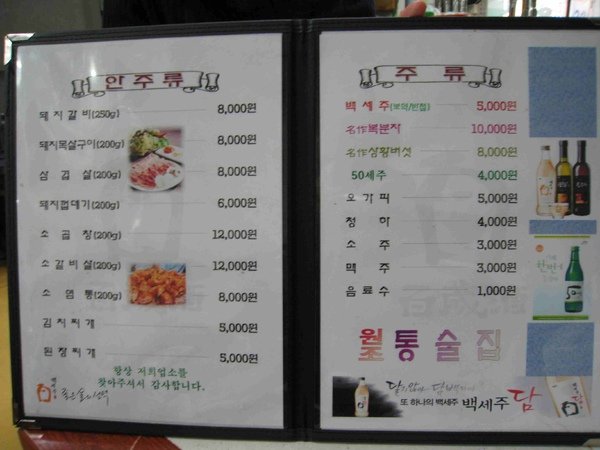 안주류
돼지갈비(250g) 8,000원
돼지목살구이(200g) 8,000원
삼겹살(200g) 8,000원
돼지껍데기(200g) 6,000원
소곱창(200g) 12,000원
소갈비살(200g) 12,000원
소염통(200g) 8,000원
김치찌개 5,000원
된장찌개 5,000원
항상 저희업소를
찾아주셔서 감사합니다.
좋은술의선택
주류
백세주 5,000원
名作복분자 10,000원
名作상황버섯 8,000원
50세주 4,000원
오가피 5,000원
청하 4,000원
소주 3,000원
맥주 3,000원
음료수 1,000원
원조 통술집
달지않아 담백하게
또 하나의 백세주 백세주 담